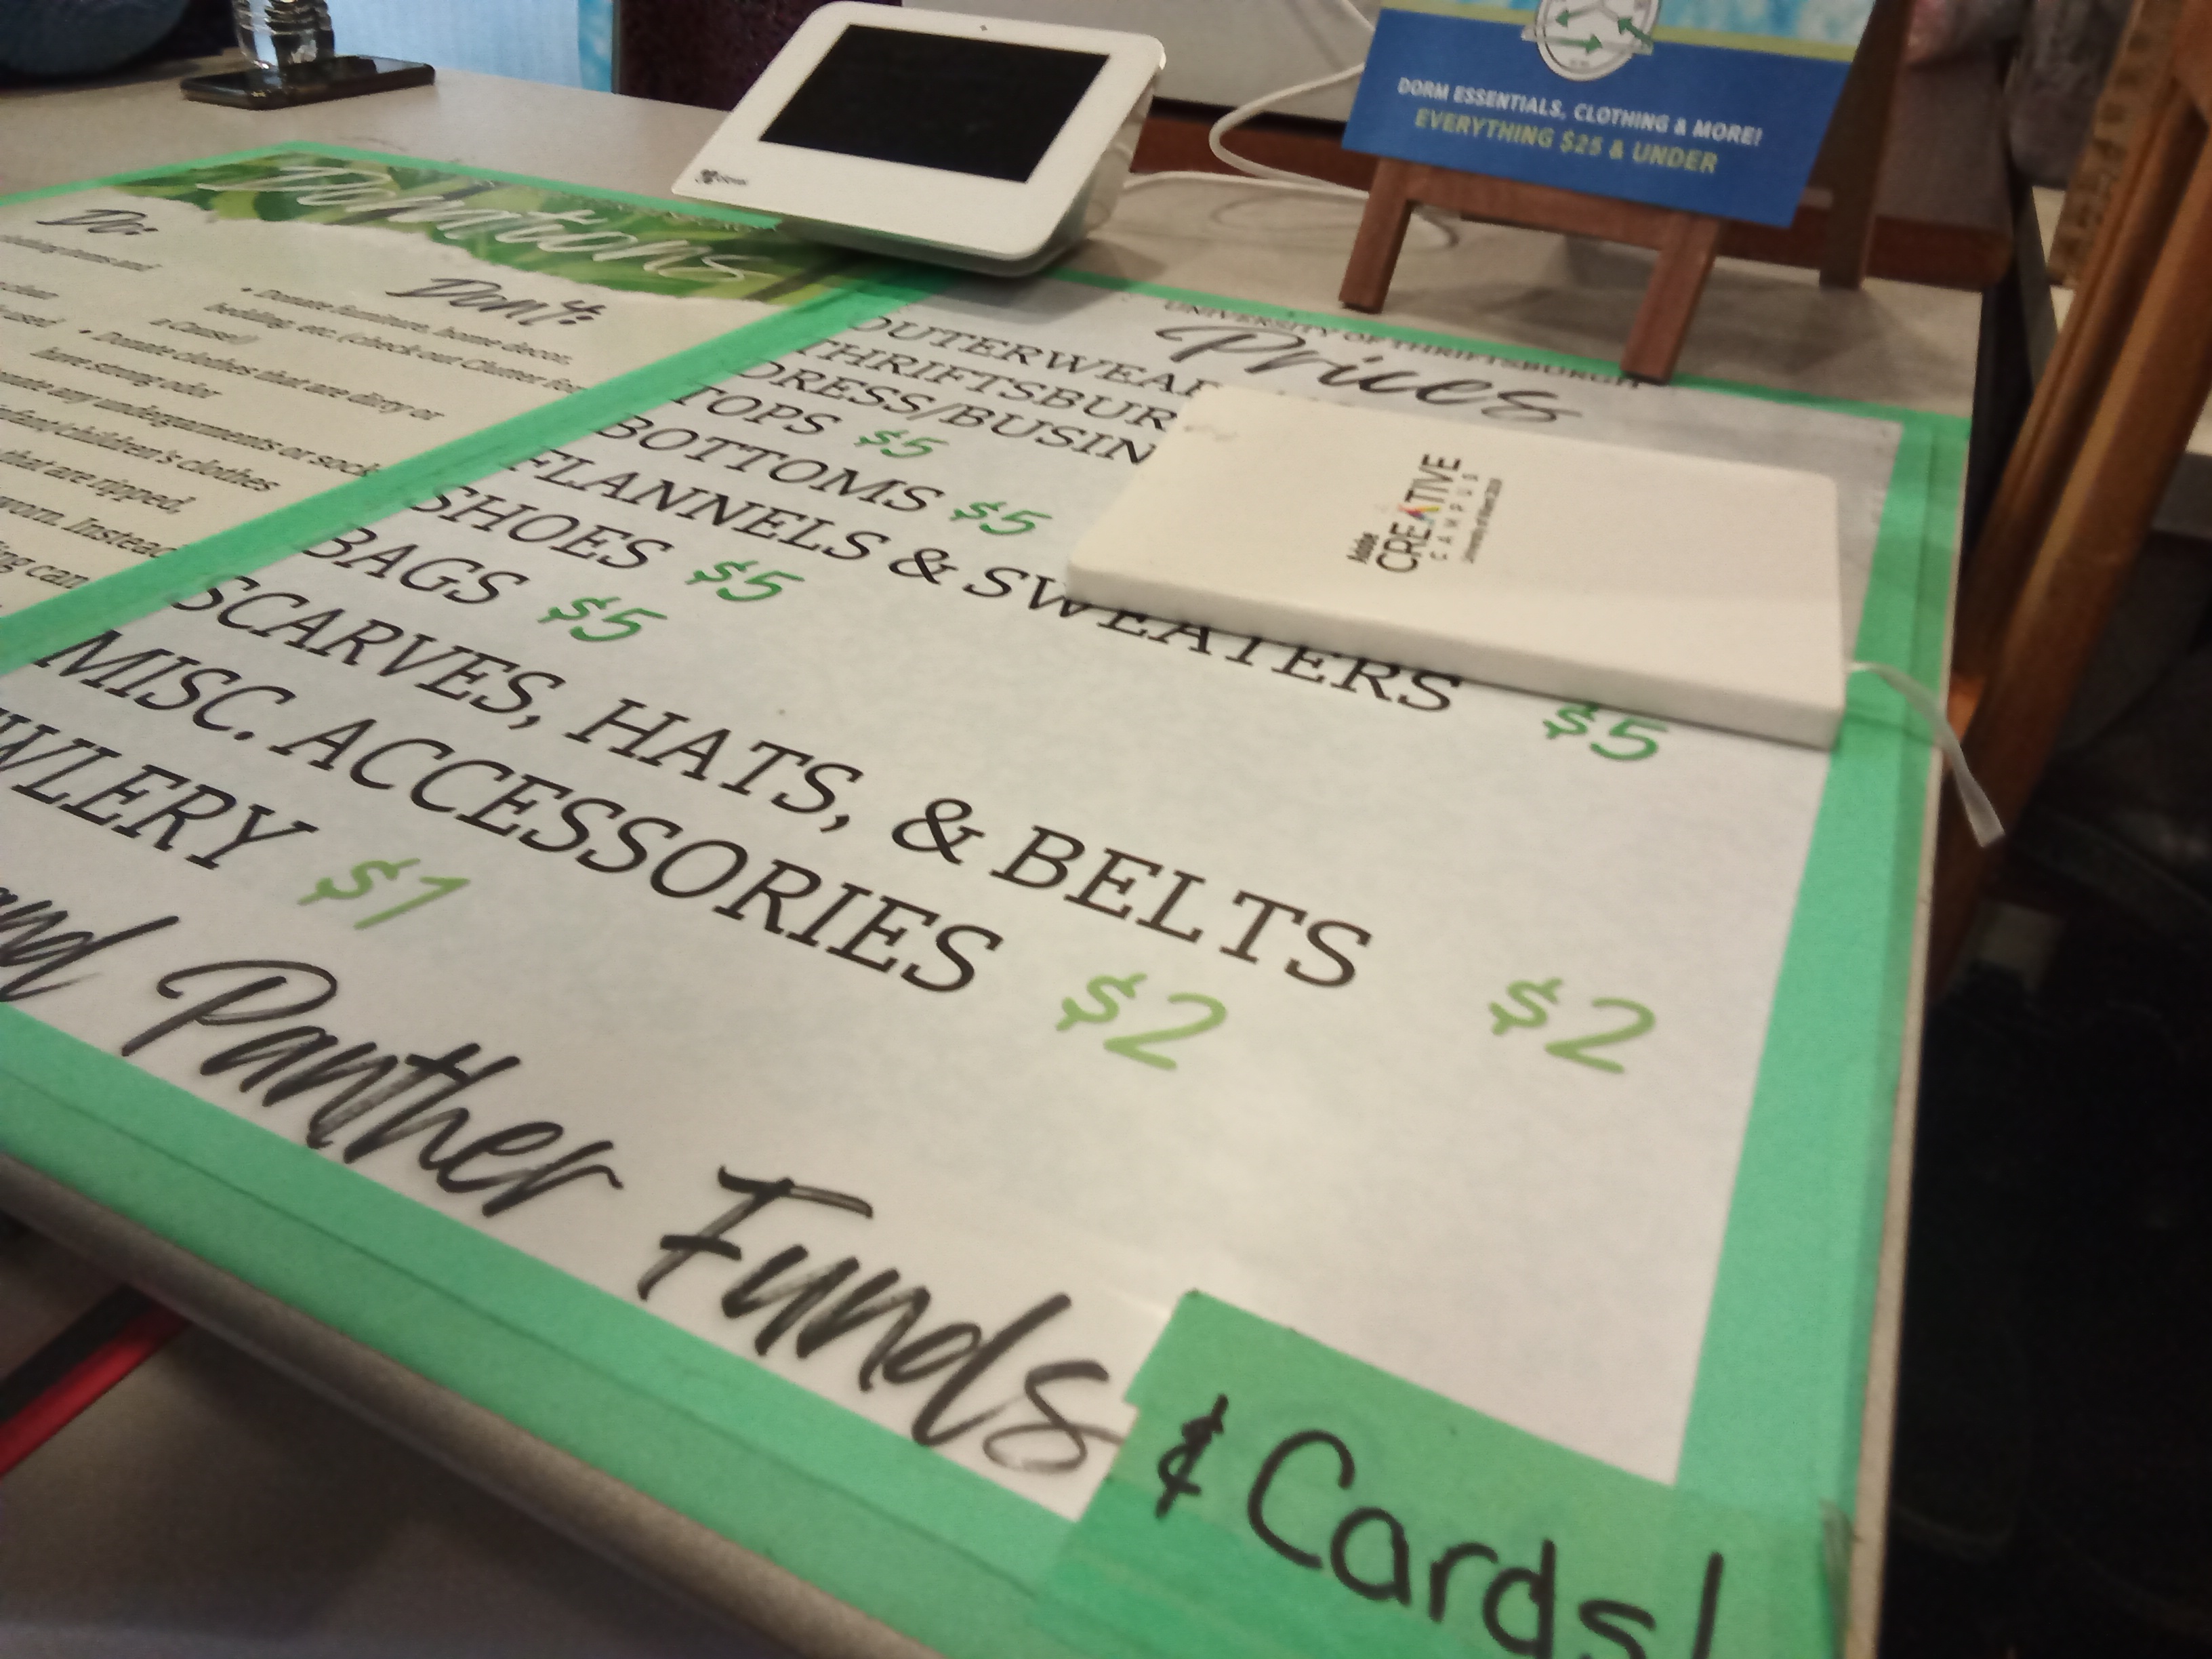 DORM ESSENTIALS, CLOTHING & MORE!
EVERYTHING $25 & UNDER
clover
Donations
Do:
Don't:
• Donate furniture, home decor,
building, etc. (check out Clutter for
a Cause!)
• Donate clothes that are dirty or
have strong odor
any undergarments or socks
children's clothes
that are ripped,
worn. Instead
can
UNIVERSITY OF THRIFTSBURGH
Prices
OUTERWEAR
THRIFTSBUR
DRESS/BUSIN
TOPS $5
BOTTOMS $5
FLANNELS & SWEATERS $5
SHOES $5
BAGS $5
SCARVES, HATS, & BELTS $2
MISC. ACCESSORIES $2
WLERY $1
and Panther Funds
& Cards!
Adobe
CREATIVE
CAMPUS